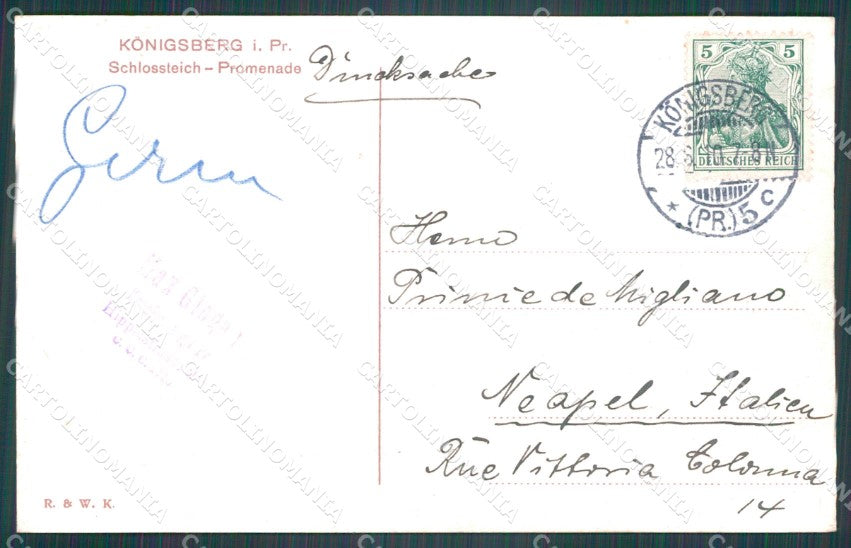 KÖNIGSBERG i. Pr.
Schlossteich - Promenade
Drucksache
5 5
DEUTSCHES REICH
KÖNIGSBERG
(PR.) 5 c
Germ
Herrn
Prince de Migliano
Neapel, Italien
Rue Vittoria Colonna
14
R. & W. K.
CARTOLINOMANIA